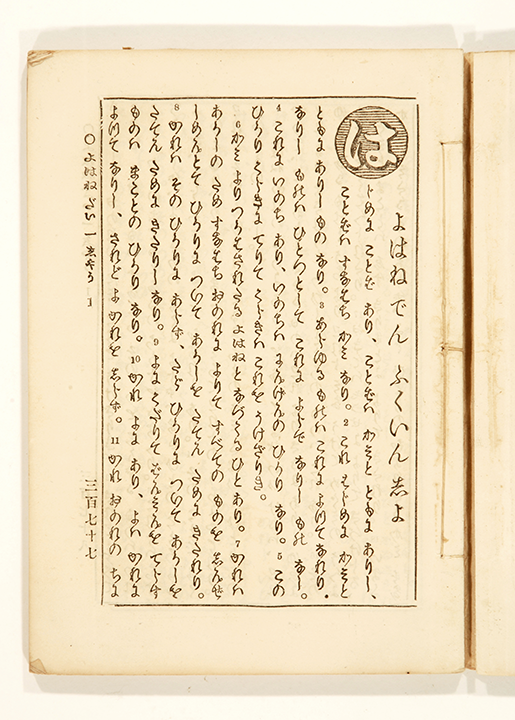 よはねでん ふくいん志よ
はじめに ことば あり、ことばハ かみと ともに ありし、
ことばハ すなはち かミ なり。2 これ はじめに かみと
ともに ありし もの なり。3 あらゆる ものハ これに よつて なれり。
なりし ものハ ひとつとして これに よらで なりし もの なし。
4 これに いのち あり、いのちハ にんげんの ひかり なり。5 この
ひかり くらきに てりて くらきハ これを うけざりき。
6 かミ よりつかはされたる よはねと なづくる ひとあり。7 かれハ
あかしの ため すなはち おのれに よりて すべての ものを しんぜ
しめんとて ひかりに ついて あかしを たてん ために きたれり。
8 かれハ その ひかりに あらず、たゞ ひかりに ついて あかしを
たてん ために きたりし なり。9 よに くだりて を てらす
ものハ まことの ひかり なり。10 かれ よに あり、よハ かれに
よつて なりし、されど よ かれを しらず。11 かれ おのれの ちに
〇よはねだい一志やう 1
三百七十七